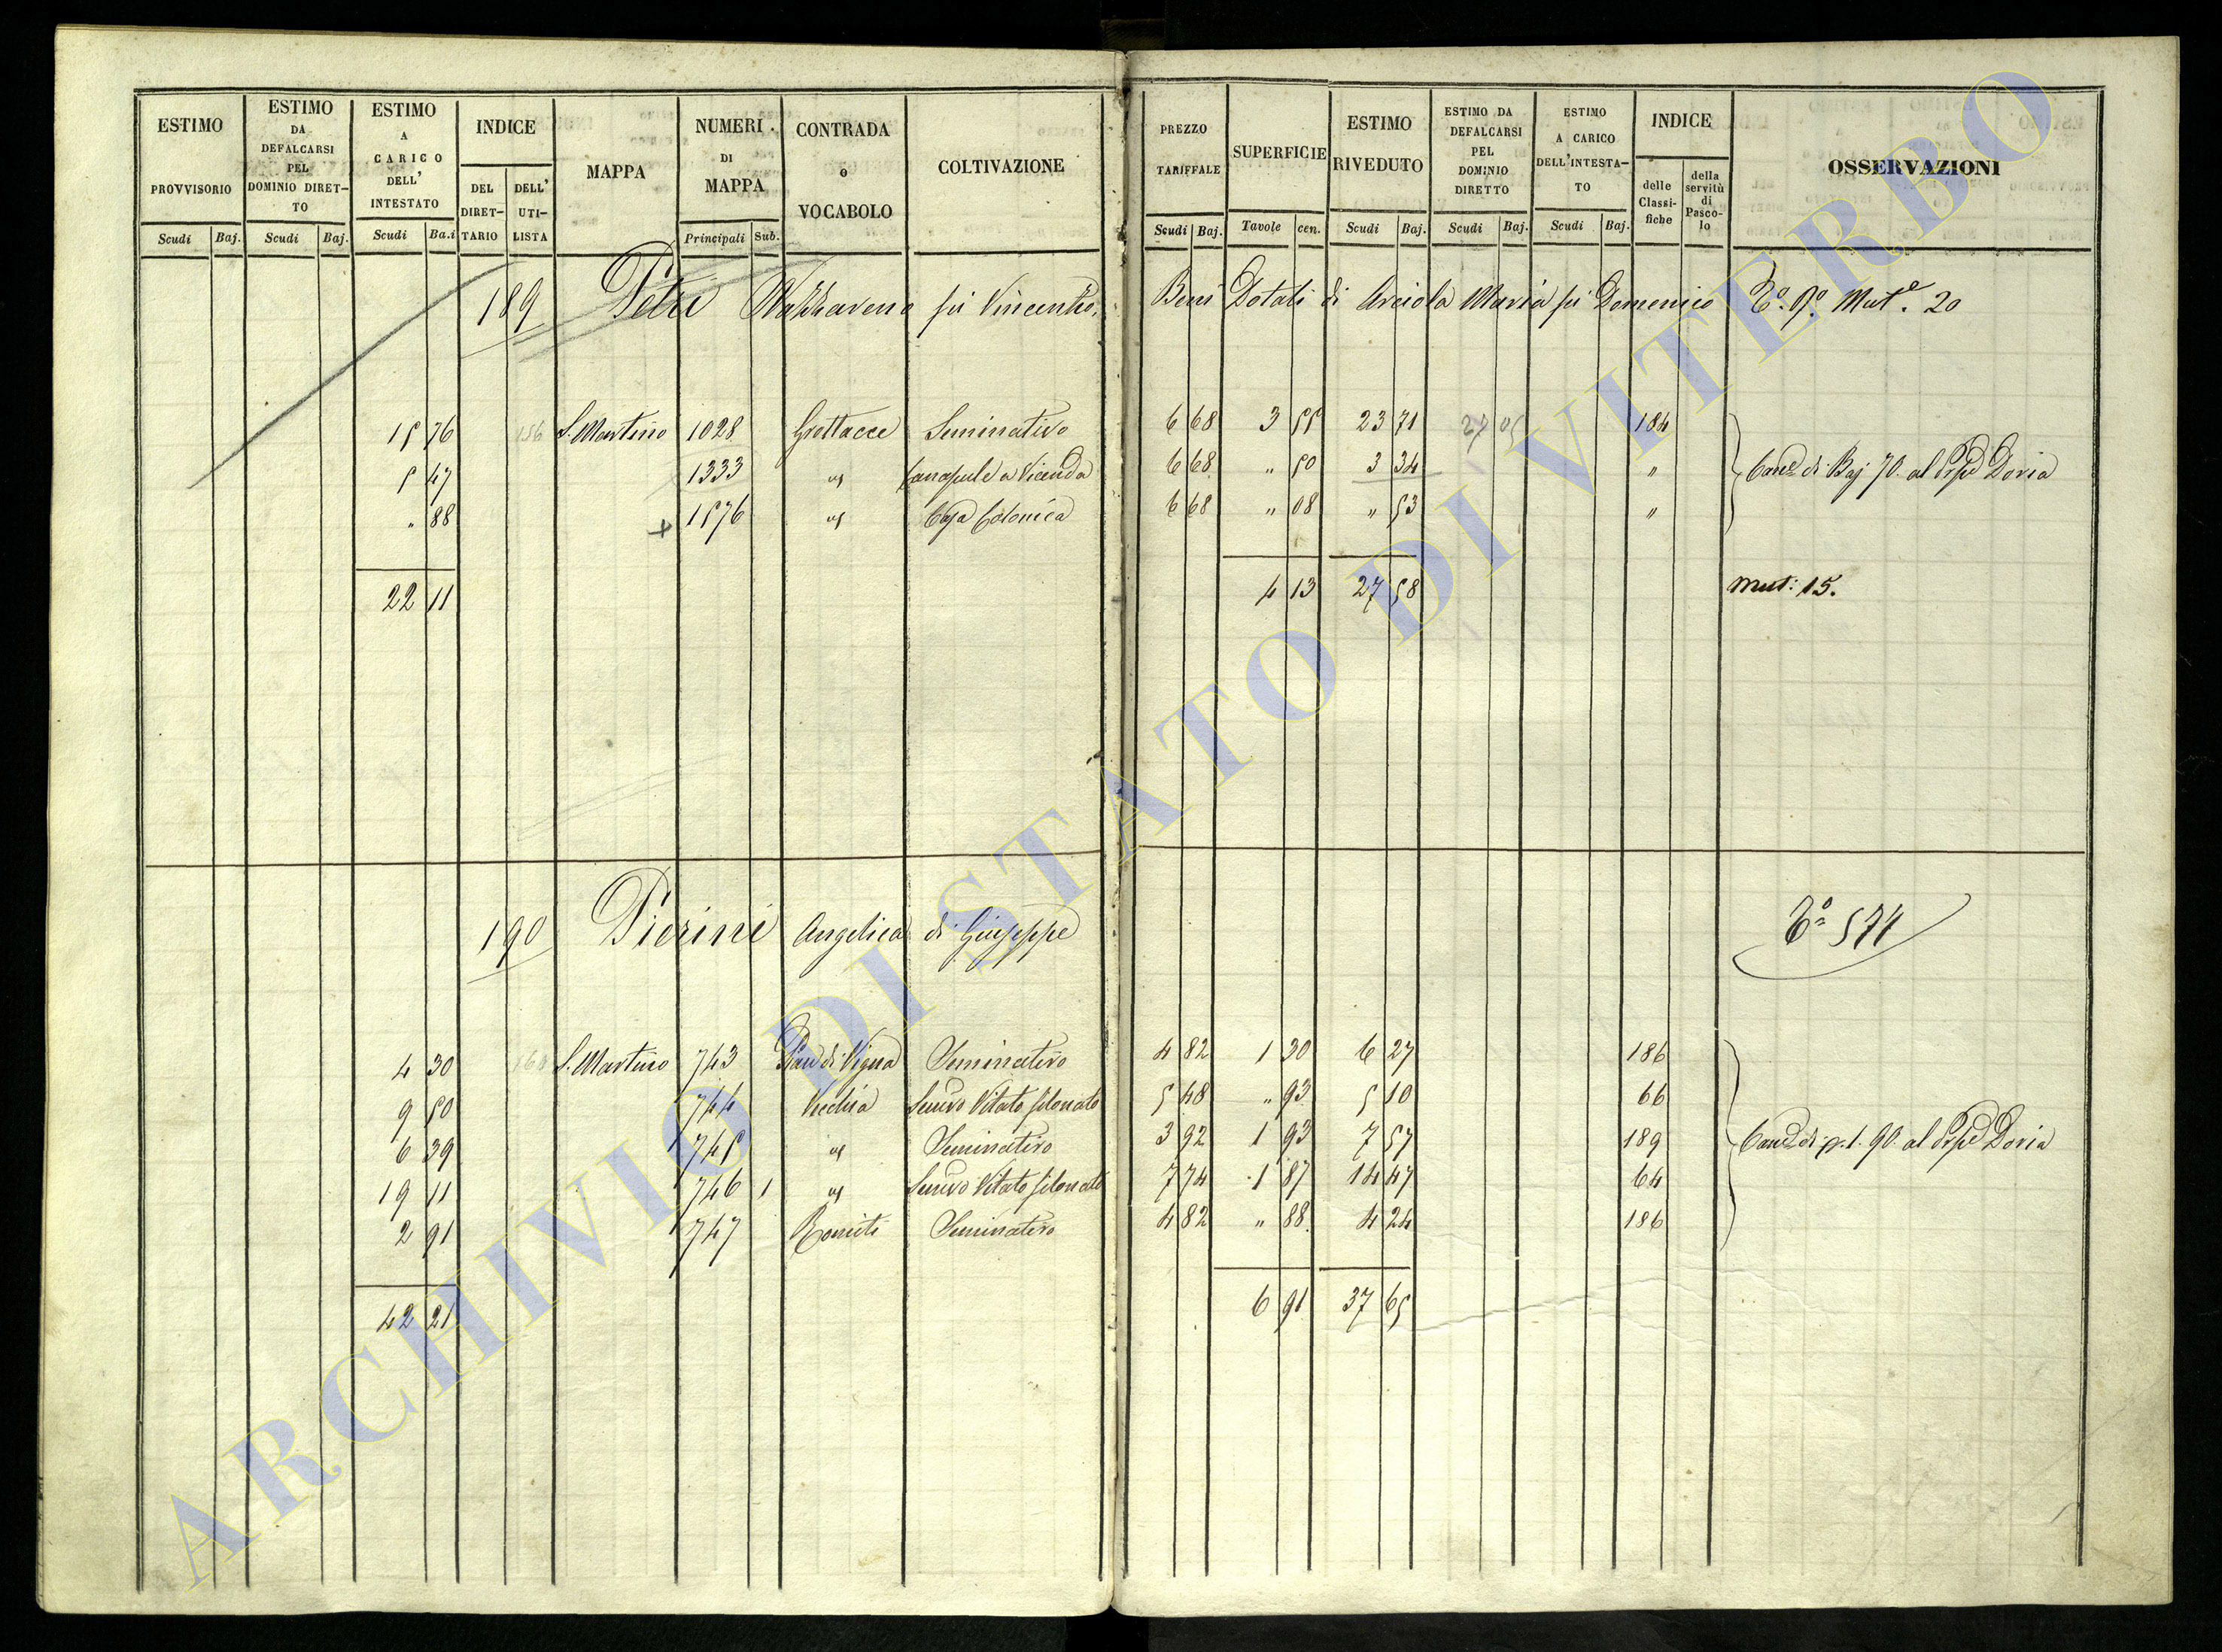 ESTIMO PROVVISORIO Scudi Baj.
ESTIMO DA DEFALCARSI PEL DOMINIO DIRET-TO Scudi Baj.
ESTIMO A CARICO DELL' INTESTATO Scudi Ba.i
INDICE DEL DIRET-TARIO DELL' UTI-LISTA
MAPPA
NUMERI DI MAPPA Principali Sub.
CONTRADA O VOCABOLO
COLTIVAZIONE
PREZZO TARIFFALE Scudi Baj.
SUPERFICIE Tavole cen.
ESTIMO RIVEDUTO Scudi Baj.
ESTIMO DA DEFALCARSI PEL DOMINIO DIRETTO Scudi Baj.
ESTIMO A CARICO DELL'INTESTA-TO Scudi Baj.
INDICE delle Classi-fiche della servitù di Pasco-lo
OSSERVAZIONI
189 Petri Nazzareno fu Vincenzo. Beni Dotali di Arciola Maria fu Domenico T.o 9.o Mut.e 20
15 76 186 S. Martino 1028 Grottacce Seminativo 6 68 3 55 23 71 27 05 184
5 47 1333 " Canapule a Vicenda 6 68 " 50 3 34 " Can.e di Baj 70. al Prpe Doria
" 88 + 1576 " Casa Colonica 6 68 " 08 " 53 "
22 11 4 13 27 58 Mut: 15.
190 Pierini Angelica di Giuseppe T.o 574
4 30 160 S. Martino 743 Pian di Vigna Seminativo 4 82 1 30 6 27 186
9 50 744 Vecchia Semivo Vitato filonato 5 48 " 93 5 10 66
6 39 745 " Seminativo 3 92 1 93 7 57 189 Can.e di p. 1. 90. al Prpe Doria
19 11 746 1 " Semivo Vitato filonato 7 74 1 87 14 47 64
2 91 747 Romiti Seminativo 4 82 " 88 4 24 186
42 21 6 91 37 65
ARCHIVIO DI STATO DI VITERBO